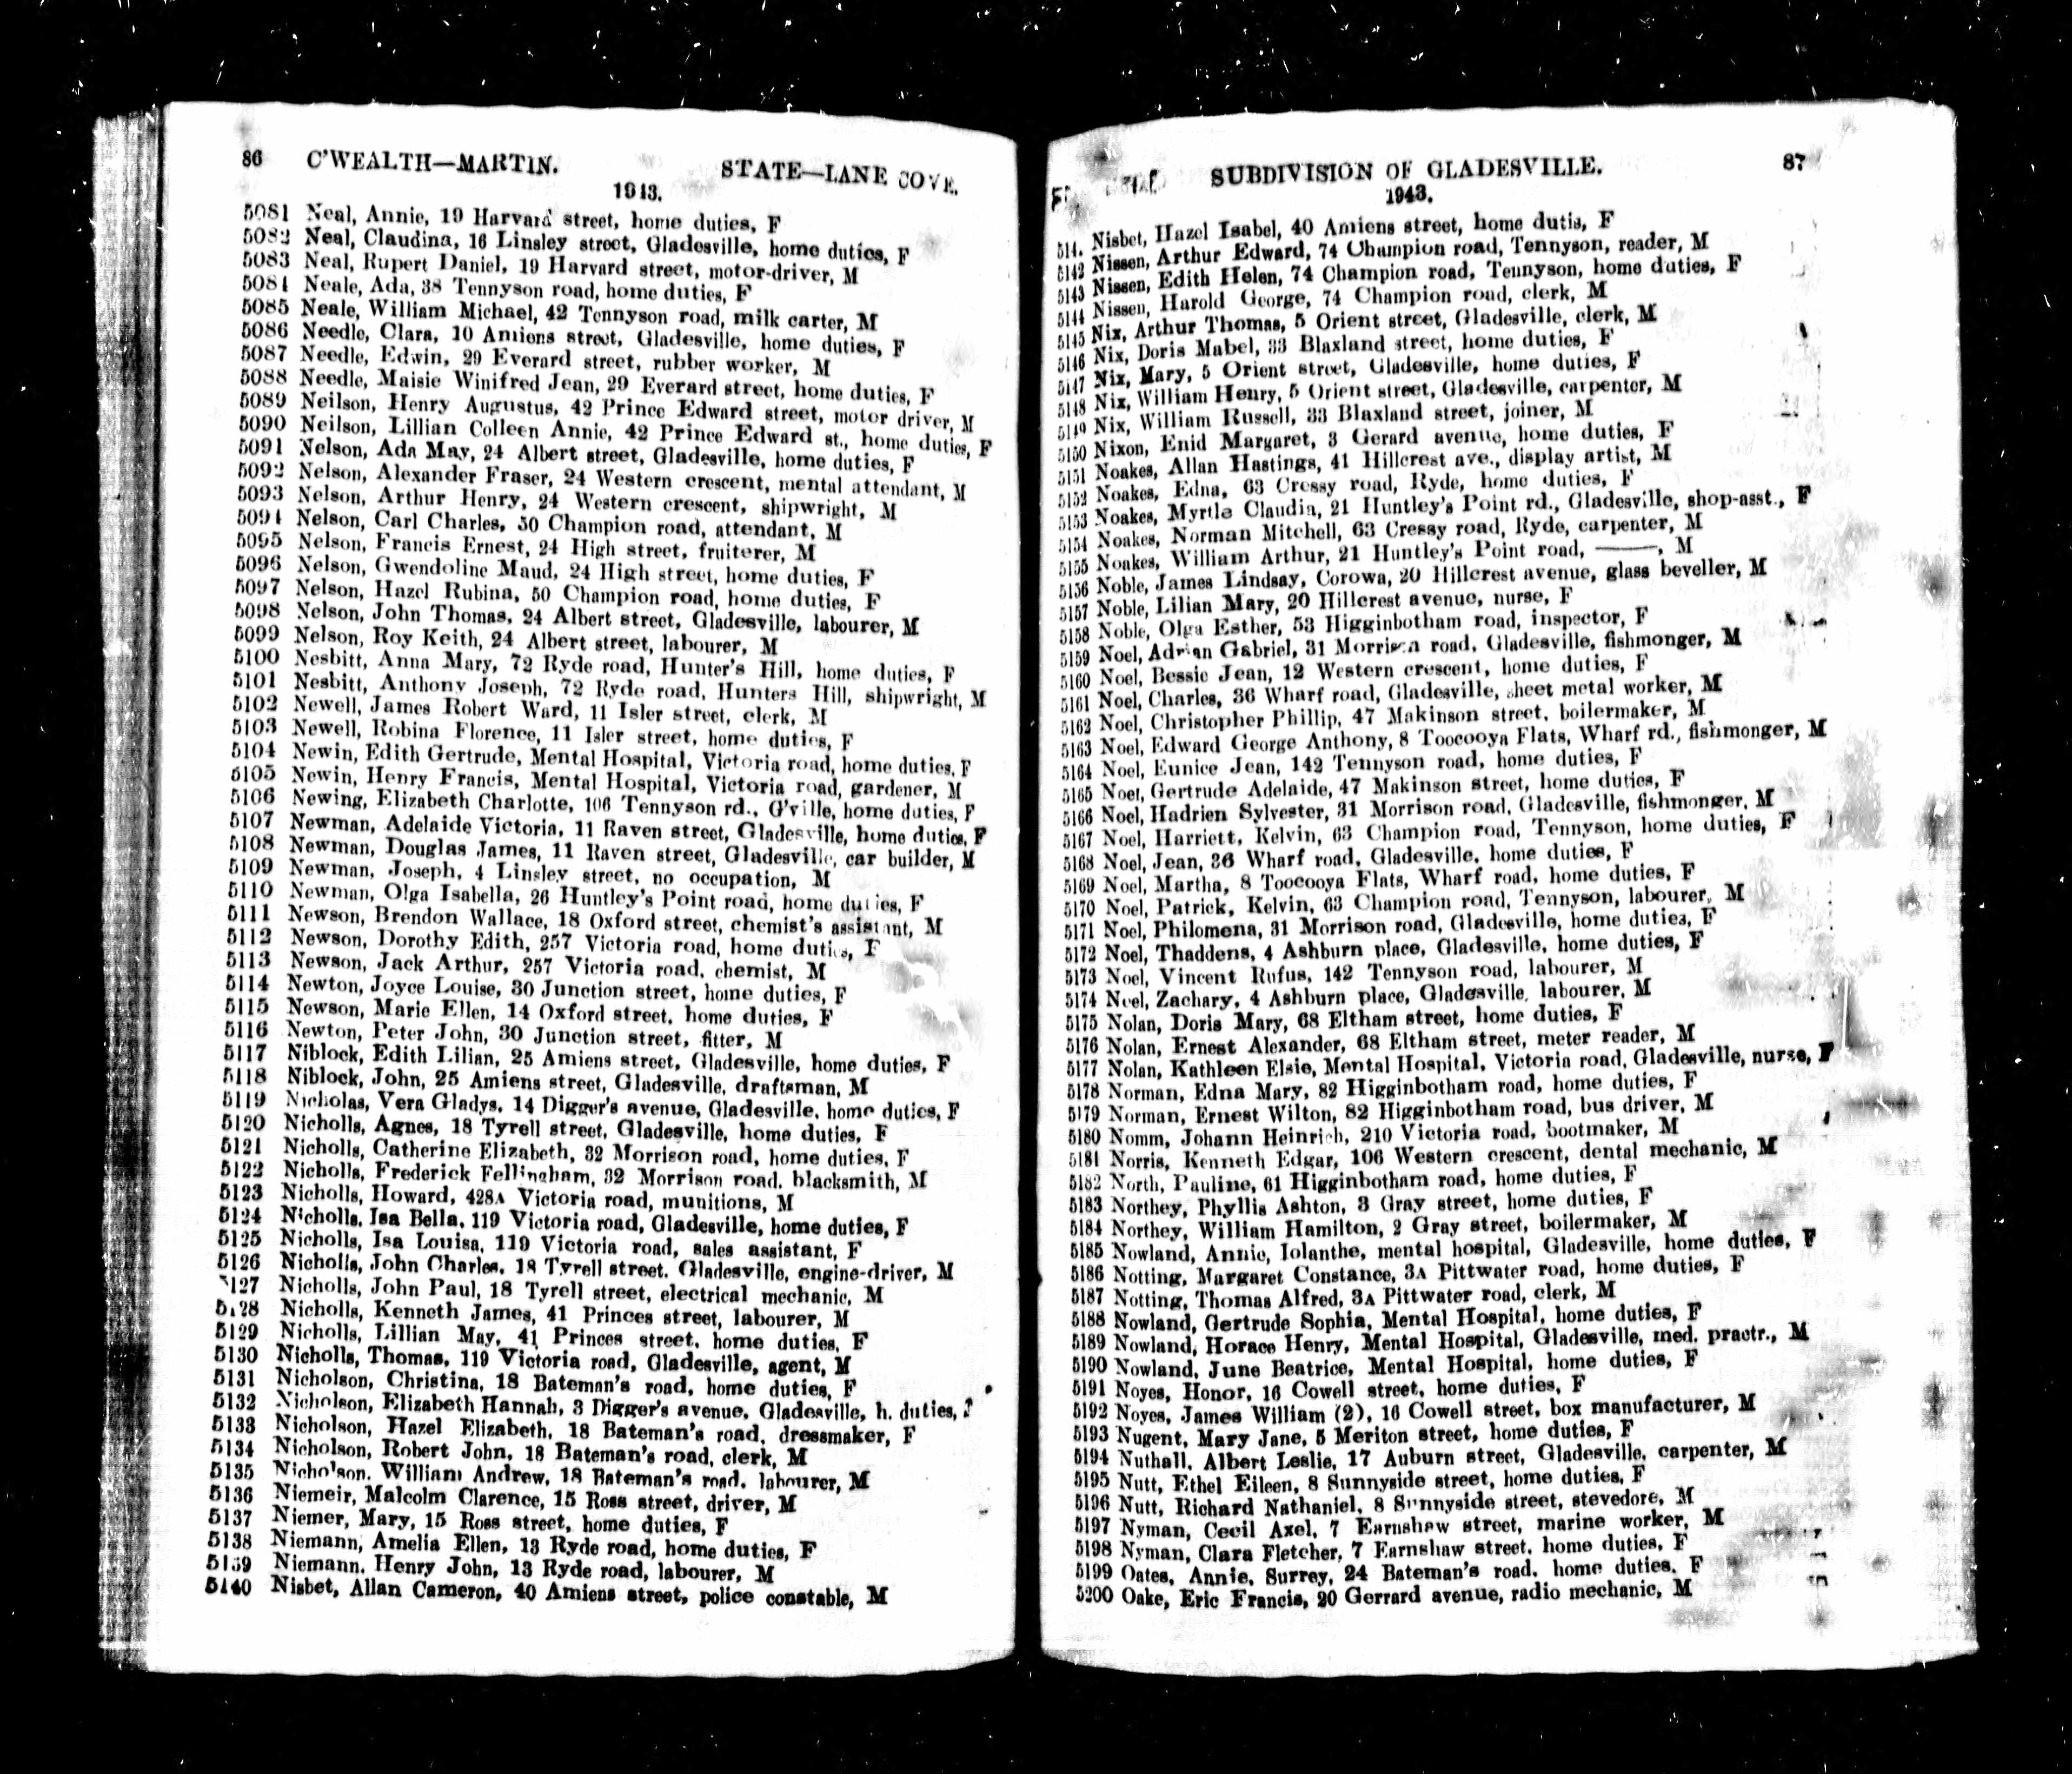 86 C'WEALTH—MARTIN. STATE—LANE COVE.
1943.
5081 Neal, Annie, 19 Harvard street, home duties, F
5082 Neal, Claudina, 16 Linsley street, Gladesville, home duties, F
5083 Neal, Rupert Daniel, 19 Harvard street, motor-driver, M
5084 Neale, Ada, 38 Tennyson road, home duties, F
5085 Neale, William Michael, 42 Tennyson road, milk carter, M
5086 Needle, Clara, 10 Amiens street, Gladesville, home duties, F
5087 Needle, Edwin, 29 Everard street, rubber worker, M
5088 Needle, Maisie Winifred Jean, 29 Everard street, home duties, F
5089 Neilson, Henry Augustus, 42 Prince Edward street, motor driver, M
5090 Neilson, Lillian Colleen Annie, 42 Prince Edward st., home duties, F
5091 Nelson, Ada May, 24 Albert street, Gladesville, home duties, F
5092 Nelson, Alexander Fraser, 24 Western crescent, mental attendant, M
5093 Nelson, Arthur Henry, 24 Western crescent, shipwright, M
5094 Nelson, Carl Charles, 50 Champion road, attendant, M
5095 Nelson, Francis Ernest, 24 High street, fruiterer, M
5096 Nelson, Gwendoline Maud, 24 High street, home duties, F
5097 Nelson, Hazel Rubina, 50 Champion road, home duties, F
5098 Nelson, John Thomas, 24 Albert street, Gladesville, labourer, M
5099 Nelson, Roy Keith, 24 Albert street, labourer, M
5100 Nesbitt, Anna Mary, 72 Ryde road, Hunter's Hill, home duties, F
5101 Nesbitt, Anthony Joseph, 72 Ryde road, Hunters Hill, shipwright, M
5102 Newell, James Robert Ward, 11 Isler street, clerk, M
5103 Newell, Robina Florence, 11 Isler street, home duties, F
5104 Newin, Edith Gertrude, Mental Hospital, Victoria road, home duties, F
5105 Newin, Henry Francis, Mental Hospital, Victoria road, gardener, M
5106 Newing, Elizabeth Charlotte, 106 Tennyson rd., G'ville, home duties, F
5107 Newman, Adelaide Victoria, 11 Raven street, Gladesville, home duties, F
5108 Newman, Douglas James, 11 Raven street, Gladesville, car builder, M
5109 Newman, Joseph, 4 Linsley street, no occupation, M
5110 Newman, Olga Isabella, 26 Huntley's Point road, home duties, F
5111 Newson, Brendon Wallace, 18 Oxford street, chemist's assistant, M
5112 Newson, Dorothy Edith, 257 Victoria road, home duties, F
5113 Newson, Jack Arthur, 257 Victoria road, chemist, M
5114 Newton, Joyce Louise, 30 Junction street, home duties, F
5115 Newson, Marie Ellen, 14 Oxford street, home duties, F
5116 Newton, Peter John, 30 Junction street, fitter, M
5117 Niblock, Edith Lilian, 25 Amiens street, Gladesville, home duties, F
5118 Niblock, John, 25 Amiens street, Gladesville, draftsman, M
5119 Nicholas, Vera Gladys, 14 Digger's avenue, Gladesville, home duties, F
5120 Nicholls, Agnes, 18 Tyrell street, Gladesville, home duties, F
5121 Nicholls, Catherine Elizabeth, 32 Morrison road, home duties, F
5122 Nicholls, Frederick Fellingham, 32 Morrison road, blacksmith, M
5123 Nicholls, Howard, 428A Victoria road, munitions, M
5124 Nicholls, Isa Bella, 119 Victoria road, Gladesville, home duties, F
5125 Nicholls, Isa Louisa, 119 Victoria road, sales assistant, F
5126 Nicholls, John Charles, 18 Tyrell street, Gladesville, engine-driver, M
5127 Nicholls, John Paul, 18 Tyrell street, electrical mechanic, M
5128 Nicholls, Kenneth James, 41 Princes street, labourer, M
5129 Nicholls, Lillian May, 41 Princes street, home duties, F
5130 Nicholls, Thomas, 119 Victoria road, Gladesville, agent, M
5131 Nicholson, Christina, 18 Bateman's road, home duties, F
5132 Nicholson, Elizabeth Hannah, 3 Digger's avenue, Gladesville, h. duties,
5133 Nicholson, Hazel Elizabeth, 18 Bateman's road, dressmaker, F
5134 Nicholson, Robert John, 18 Bateman's road, clerk, M
5135 Nicholson, William Andrew, 18 Bateman's road, labourer, M
5136 Niemeir, Malcolm Clarence, 15 Ross street, driver, M
5137 Niemer, Mary, 15 Ross street, home duties, F
5138 Niemann, Amelia Ellen, 13 Ryde road, home duties, F
5139 Niemann, Henry John, 13 Ryde road, labourer, M
5140 Nisbet, Allan Cameron, 40 Amiens street, police constable, M
SUBDIVISION OF GLADESVILLE. 87
1943.
514. Nisbet, Hazel Isabel, 40 Amiens street, home dutis, F
5142 Nissen, Arthur Edward, 74 Champion road, Tennyson, reader, M
5143 Nissen, Edith Helen, 74 Champion road, Tennyson, home duties, F
5144 Nissen, Harold George, 74 Champion road, clerk, M
5145 Nix, Arthur Thomas, 5 Orient street, Gladesville, clerk, M
5146 Nix, Doris Mabel, 33 Blaxland street, home duties, F
5147 Nix, Mary, 5 Orient street, Gladesville, home duties, F
5148 Nix, William Henry, 5 Orient street, Gladesville, carpenter, M
5149 Nix, William Russell, 33 Blaxland street, joiner, M
5150 Nixon, Enid Margaret, 3 Gerard avenue, home duties, F
5151 Noakes, Allan Hastings, 41 Hillcrest ave., display artist, M
5152 Noakes, Edna, 63 Cressy road, Ryde, home duties, F
5153 Noakes, Myrtle Claudia, 21 Huntley's Point rd., Gladesville, shop-asst., F
5154 Noakes, Norman Mitchell, 63 Cressy road, Ryde, carpenter, M
5155 Noakes, William Arthur, 21 Huntley's Point road, ———, M
5156 Noble, James Lindsay, Corowa, 20 Hillcrest avenue, glass beveller, M
5157 Noble, Lilian Mary, 20 Hillcrest avenue, nurse, F
5158 Noble, Olga Esther, 53 Higginbotham road, inspector, F
5159 Noel, Adrian Gabriel, 31 Morrison road, Gladesville, fishmonger, M
5160 Noel, Bessie Jean, 12 Western crescent, home duties, F
5161 Noel, Charles, 36 Wharf road, Gladesville, sheet metal worker, M
5162 Noel, Christopher Phillip, 47 Makinson street, boilermaker, M
5163 Noel, Edward George Anthony, 8 Toocooya Flats, Wharf rd., fishmonger, M
5164 Noel, Eunice Jean, 142 Tennyson road, home duties, F
5165 Noel, Gertrude Adelaide, 47 Makinson street, home duties, F
5166 Noel, Hadrien Sylvester, 31 Morrison road, Gladesville, fishmonger, M
5167 Noel, Harriett, Kelvin, 63 Champion road, Tennyson, home duties, F
5168 Noel, Jean, 36 Wharf road, Gladesville, home duties, F
5169 Noel, Martha, 8 Toocooya Flats, Wharf road, home duties, F
5170 Noel, Patrick, Kelvin, 63 Champion road, Tennyson, labourer, M
5171 Noel, Philomena, 31 Morrison road, Gladesville, home duties, F
5172 Noel, Thaddens, 4 Ashburn place, Gladesville, home duties, F
5173 Noel, Vincent Rufus, 142 Tennyson road, labourer, M
5174 Noel, Zachary, 4 Ashburn place, Gladesville, labourer, M
5175 Nolan, Doris Mary, 68 Eltham street, home duties, F
5176 Nolan, Ernest Alexander, 68 Eltham street, meter reader, M
5177 Nolan, Kathleen Elsie, Mental Hospital, Victoria road, Gladesville, nurse, F
5178 Norman, Edna Mary, 82 Higginbotham road, home duties, F
5179 Norman, Ernest Wilton, 82 Higginbotham road, bus driver, M
5180 Nomm, Johann Heinrich, 210 Victoria road, bootmaker, M
5181 Norris, Kenneth Edgar, 106 Western crescent, dental mechanic, M
5182 North, Pauline, 61 Higginbotham road, home duties, F
5183 Northey, Phyllis Ashton, 3 Gray street, home duties, F
5184 Northey, William Hamilton, 2 Gray street, boilermaker, M
5185 Nowland, Annie, Iolanthe, mental hospital, Gladesville, home duties, F
5186 Notting, Margaret Constance, 3A Pittwater road, home duties, F
5187 Notting, Thomas Alfred, 3A Pittwater road, clerk, M
5188 Nowland, Gertrude Sophia, Mental Hospital, home duties, F
5189 Nowland, Horace Henry, Mental Hospital, Gladesville, med. practr., M
5190 Nowland, June Beatrice, Mental Hospital, home duties, F
5191 Noyes, Honor, 16 Cowell street, home duties, F
5192 Noyes, James William (2), 16 Cowell street, box manufacturer, M
5193 Nugent, Mary Jane, 5 Meriton street, home duties, F
5194 Nuthall, Albert Leslie, 17 Auburn street, Gladesville, carpenter, M
5195 Nutt, Ethel Eileen, 8 Sunnyside street, home duties, F
5196 Nutt, Richard Nathaniel, 8 Sunnyside street, stevedore, M
5197 Nyman, Cecil Axel, 7 Earnshaw street, marine worker, M
5198 Nyman, Clara Fletcher, 7 Earnshaw street, home duties, F
5199 Oates, Annie, Surrey, 24 Bateman's road, home duties, F
5200 Oake, Eric Francis, 20 Gerrard avenue, radio mechanic, M